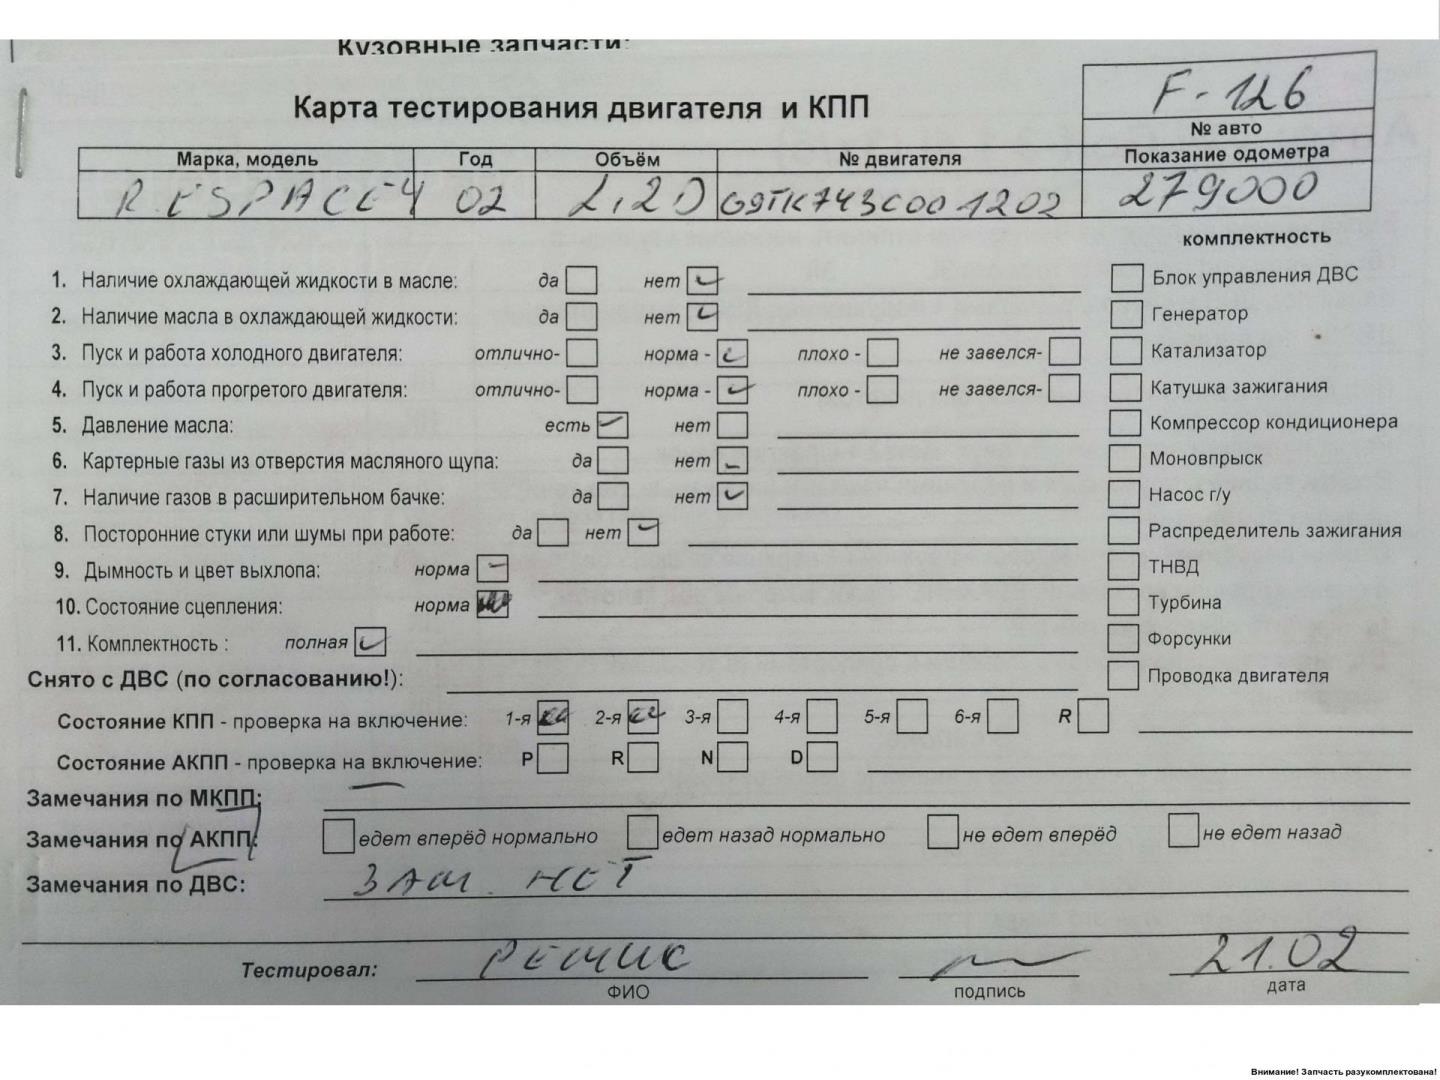 Кузовные запчасти:
Карта тестирования двигателя и КПП
F-126
№ авто
Марка, модель Год Объём № двигателя Показание одометра
R. ESPACE4 02 2,2D G9TK743C001202 279000
комплектность
1. Наличие охлаждающей жидкости в масле: да нет Блок управления ДВС
2. Наличие масла в охлаждающей жидкости: да нет Генератор
3. Пуск и работа холодного двигателя: отлично- норма - плохо - не завелся- Катализатор
4. Пуск и работа прогретого двигателя: отлично- норма - плохо - не завелся- Катушка зажигания
5. Давление масла: есть нет Компрессор кондиционера
6. Картерные газы из отверстия масляного щупа: да нет Моновпрыск
7. Наличие газов в расширительном бачке: да нет Насос г/у
8. Посторонние стуки или шумы при работе: да нет Распределитель зажигания
9. Дымность и цвет выхлопа: норма ТНВД
10. Состояние сцепления: норма Турбина
11. Комплектность : полная Форсунки
Снято с ДВС (по согласованию!): Проводка двигателя
Состояние КПП - проверка на включение: 1-я 2-я 3-я 4-я 5-я 6-я R
Состояние АКПП - проверка на включение: P R N D
Замечания по МКПП:
Замечания по АКПП: едет вперёд нормально едет назад нормально не едет вперёд не едет назад
Замечания по ДВС: ЗАМ. НЕТ
Тестировал: 21.02
ФИО подпись дата
Внимание! Запчасть разукомплектована!